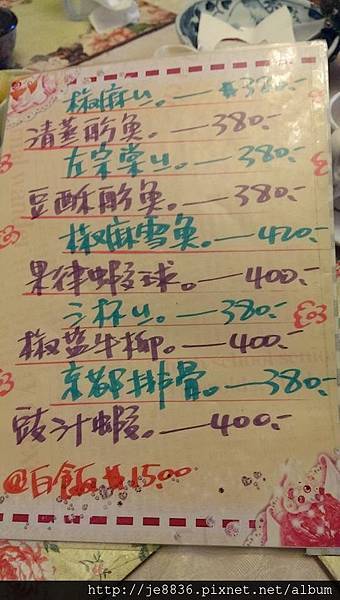 椒麻ㄐ。— $320.-
清蒸酚魚。—380.-
左宗棠ㄐ。—380.-
豆酥酚魚。—380.-
椒麻雪魚。—420.-
果律蝦球。—400.-
三杯ㄐ。—380.-
椒盐牛柳。—400.-
京都排骨。—380.-
豉汁蝦。—400.-
@白飯 $15.00
http://je8836.pixnet.net/album